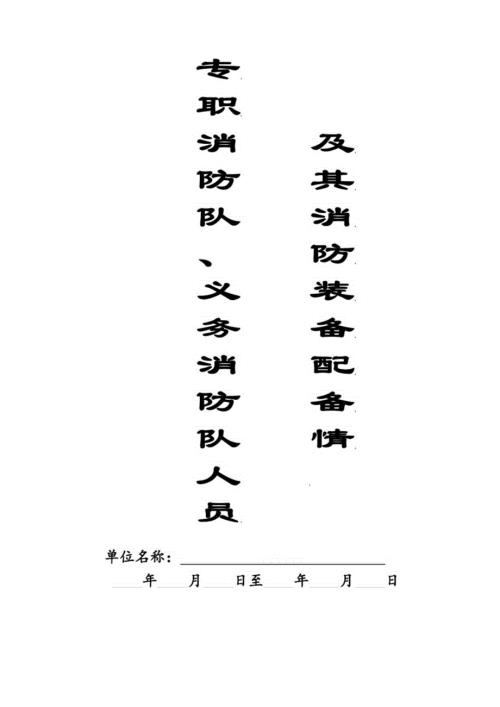 专职消防队、义务消防队人员
及其消防装备配备情
单位名称：
年 月 日至 年 月 日